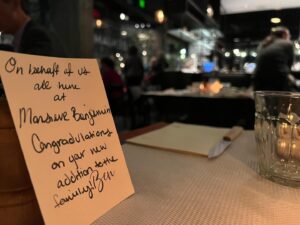 On behalf of us
all here
at
Monsieur Benjamin
Congradulations
on your new
addition to the
family! Ben